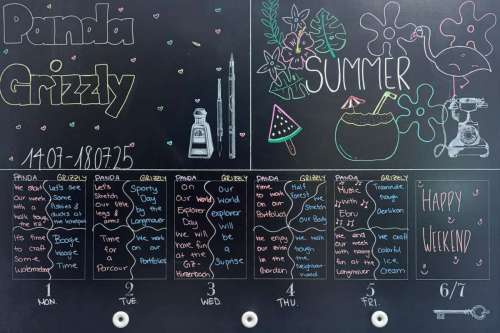 Panda
Grizzly
14.07-18.07.25
SUMMER
PANDA GRIZZLY
We start
our week
with a
walk
Let's see
some
fishies &
ducks at
the
It's time
to craft
some
Watermelons
Boogie
Woogie
Time
PANDA GRIZZLY
Let's
stretch
our little
legs &
arms
Sporty
Day
by the
Langmauer
Time
for a
Parcour
We work
on our
Portfolios
PANDA GRIZZLY
On
our World
Explorer
Day
We will
have fun
at the
GZ-
Hirzenbach
On our
World
explorer
will
be
a
Suprise
PANDA GRIZZLY
time
to work
on our
Portfolios
Half
Forest
We
stretch
our Body
We enjoy
our time
in the
Garden
We walk
trough
the
Neighbor
hood
PANDA GRIZZLY
Music
with
Ebru
Tramride
trough
Oerlikon
We end
our week
with some
fun at the
Langmauer
We craft
colorful
Ice
Cream
HAPPY
WEEKEND
1
MON.
2
TUE
3
WED.
4
THU.
5
FRI.
6/7